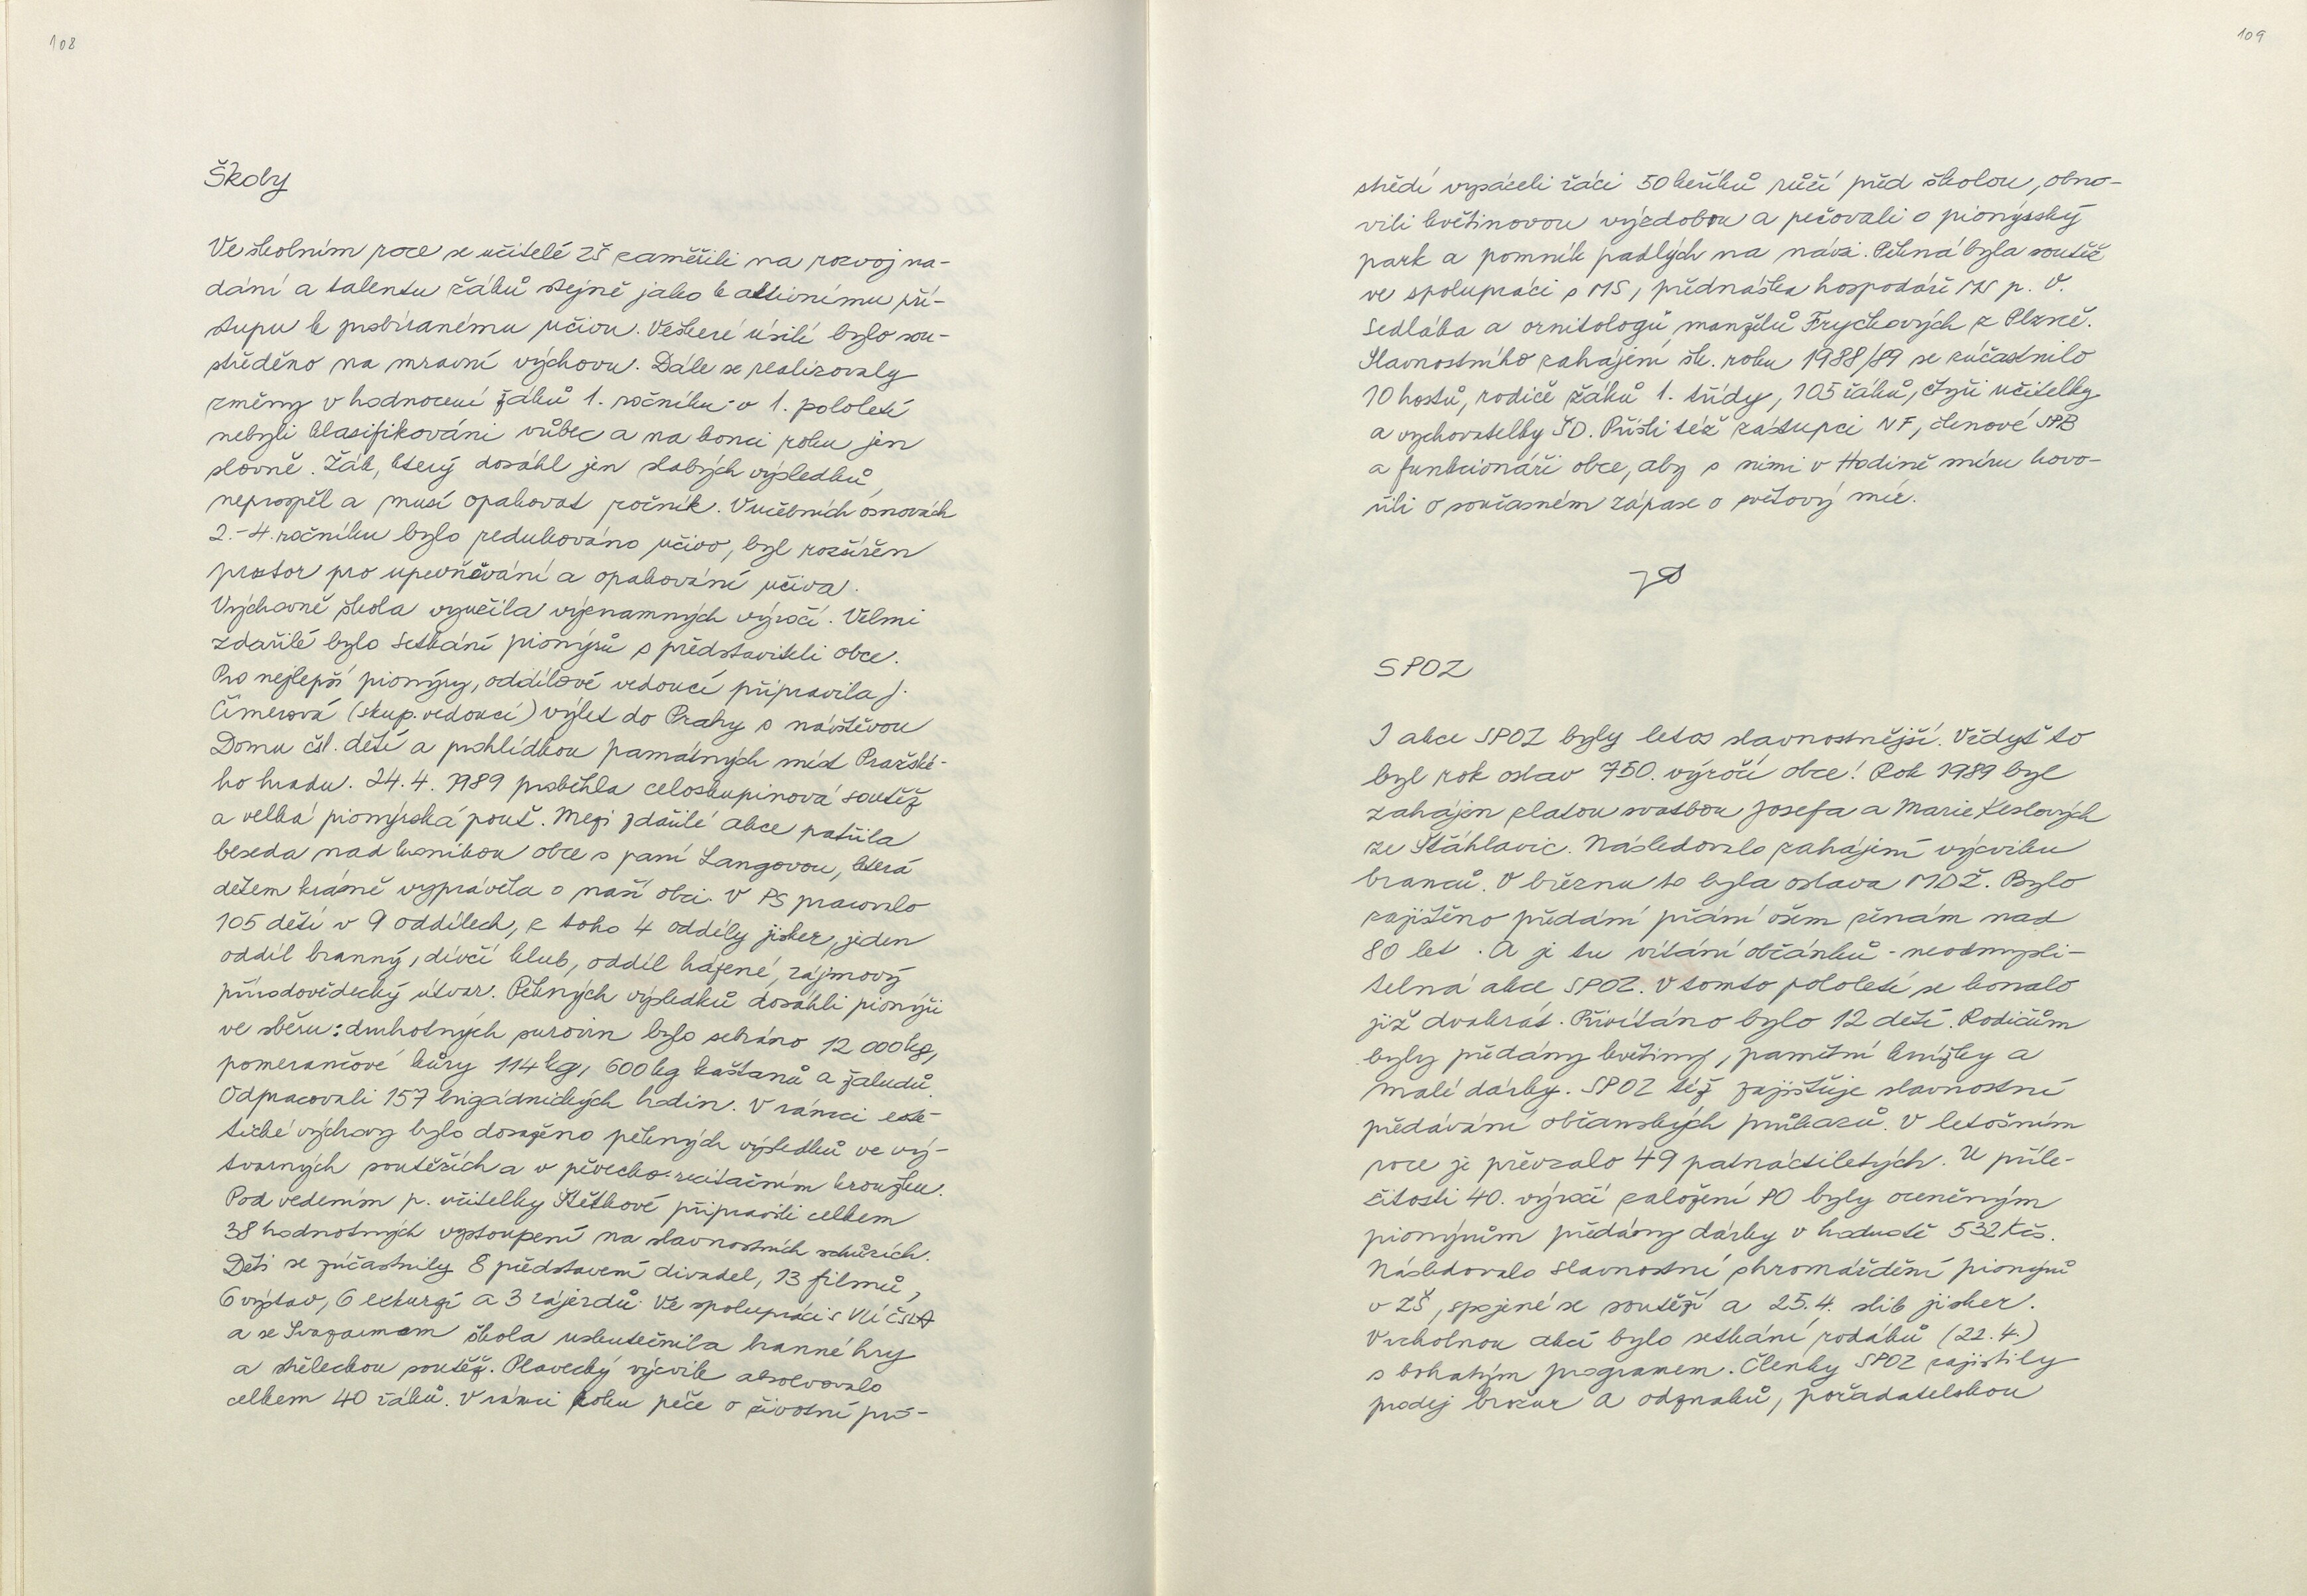 108
Školy
Ve školním roce se učitelé ZŠ zaměřili na rozvoj na-
dání a talentu žáků stejně jako k aktivnímu pří-
stupu k probíranému učivu. Veškeré úsilí bylo sou-
středěno na mravní výchovu. Dále se realizovaly
změny v hodnocení žáků 1. ročníku - v 1. pololetí
nebyli klasifikováni vůbec a na konci roku jen
slovně. Žák, který dosáhl jen slabých výsledků,
neprospěl a musí opakovat ročník. V učebních osnovách
2.-4. ročníku bylo redukováno učivo, byl rozšířen
prostor pro upevňování a opakování učiva.
Výchovně škola využila významných výročí. Velmi
zdařilé bylo setkání pionýrů s představiteli obce.
Pro nejlepší pionýry, oddílové vedoucí připravila s.
Cimerová (skup. vedoucí) výlet do Prahy s návštěvou
Domu čsl. dětí a prohlídkou památných míst Pražské-
ho hradu. 24.4. 1989 proběhla celoskupinová soutěž
a velká pionýrská pouť. Mezi zdařilé akce patřila
beseda nad kronikou obce s paní Langovou, která
dětem krásně vyprávěla o naší obci. V PS pracovalo
105 dětí v 9 oddílech, z toho 4 oddíly jisker, jeden
oddíl branný, dívčí klub, oddíl házené, zájmový
přírodovědecký útvar. Pěkných výsledků dosáhli pionýři
ve sběru: druhotných surovin bylo sebráno 12 000 kg,
pomerančové kůry 114 kg, 600 kg kaštanů a žaludů.
Odpracovali 157 brigádnických hodin. V rámci este-
tické výchovy bylo dosaženo pěkných výsledků ve vý-
tvarných soutěžích a v pěvecko-recitačním kroužku.
Pod vedením p. učitelky Štětkové připravili celkem
38 hodnotných vystoupení na slavnostních schůzích.
Děti se zúčastnily 8 představení divadel, 13 filmů,
6 výstav, 6 exkurzí a 3 zájezdů. Ve spolupráci s VÚ ČSLA
a se Svazarmem škola uskutečnila branné hry
a střeleckou soutěž. Plavecký výcvik absolvovalo
celkem 40 žáků. V rámci roku péče o životní pro-
109
středí vysázeli žáci 50 keříků růží před školou, obno-
vili květinovou výzdobu a pečovali o pionýrský
park a pomník padlých na návsi. Pěkná byla soutěž
ve spolupráci s MS, přednáška hospodáře MS p. V.
Sedláka a ornitologů, manželů Fryčkových z Plzně.
Slavnostního zahájení šk. roku 1988/89 se zúčastnilo
10 hostů, rodiče žáků 1. třídy, 105 žáků, čtyři učitelky
a vychovatelky ŠD. Přišli též zástupci NF, členové SPB
a funkcionáři obce, aby s nimi v Hodině míru hovo-
řili o současném zápase o světový mír.
SPOZ
I akce SPOZ byly letos slavnostnější. Vždyť to
byl rok oslav 750. výročí obce! Rok 1989 byl
zahájen zlatou svatbou Josefa a Marie Keslových
ze Šťáhlavic. Následovalo zahájení výcviku
branců. V březnu to byla oslava MDŽ. Bylo
zajištěno předání přání všem ženám nad
80 let. A je tu vítání občánků - neodmysli-
telná akce SPOZ. V tomto pololetí se konalo
již dvakrát. Přivítáno bylo 12 dětí. Rodičům
byly předány květiny, pamětní knížky a
malé dárky. SPOZ též zajišťuje slavnostní
předávání občanských průkazů. V letošním
roce je převzalo 49 patnáctiletých. U příle-
žitosti 40. výročí založení PO byly oceněným
pionýrům předány dárky v hodnotě 532 Kčs.
Následovalo slavnostní shromáždění pionýrů
v ZŠ, spojené se soutěží a 25.4. slib jisker.
Vrcholnou akcí bylo setkání rodáků (22.4.)
s bohatým programem. Členky SPOZ zajistily
prodej brožur a odznaků, pořadatelskou